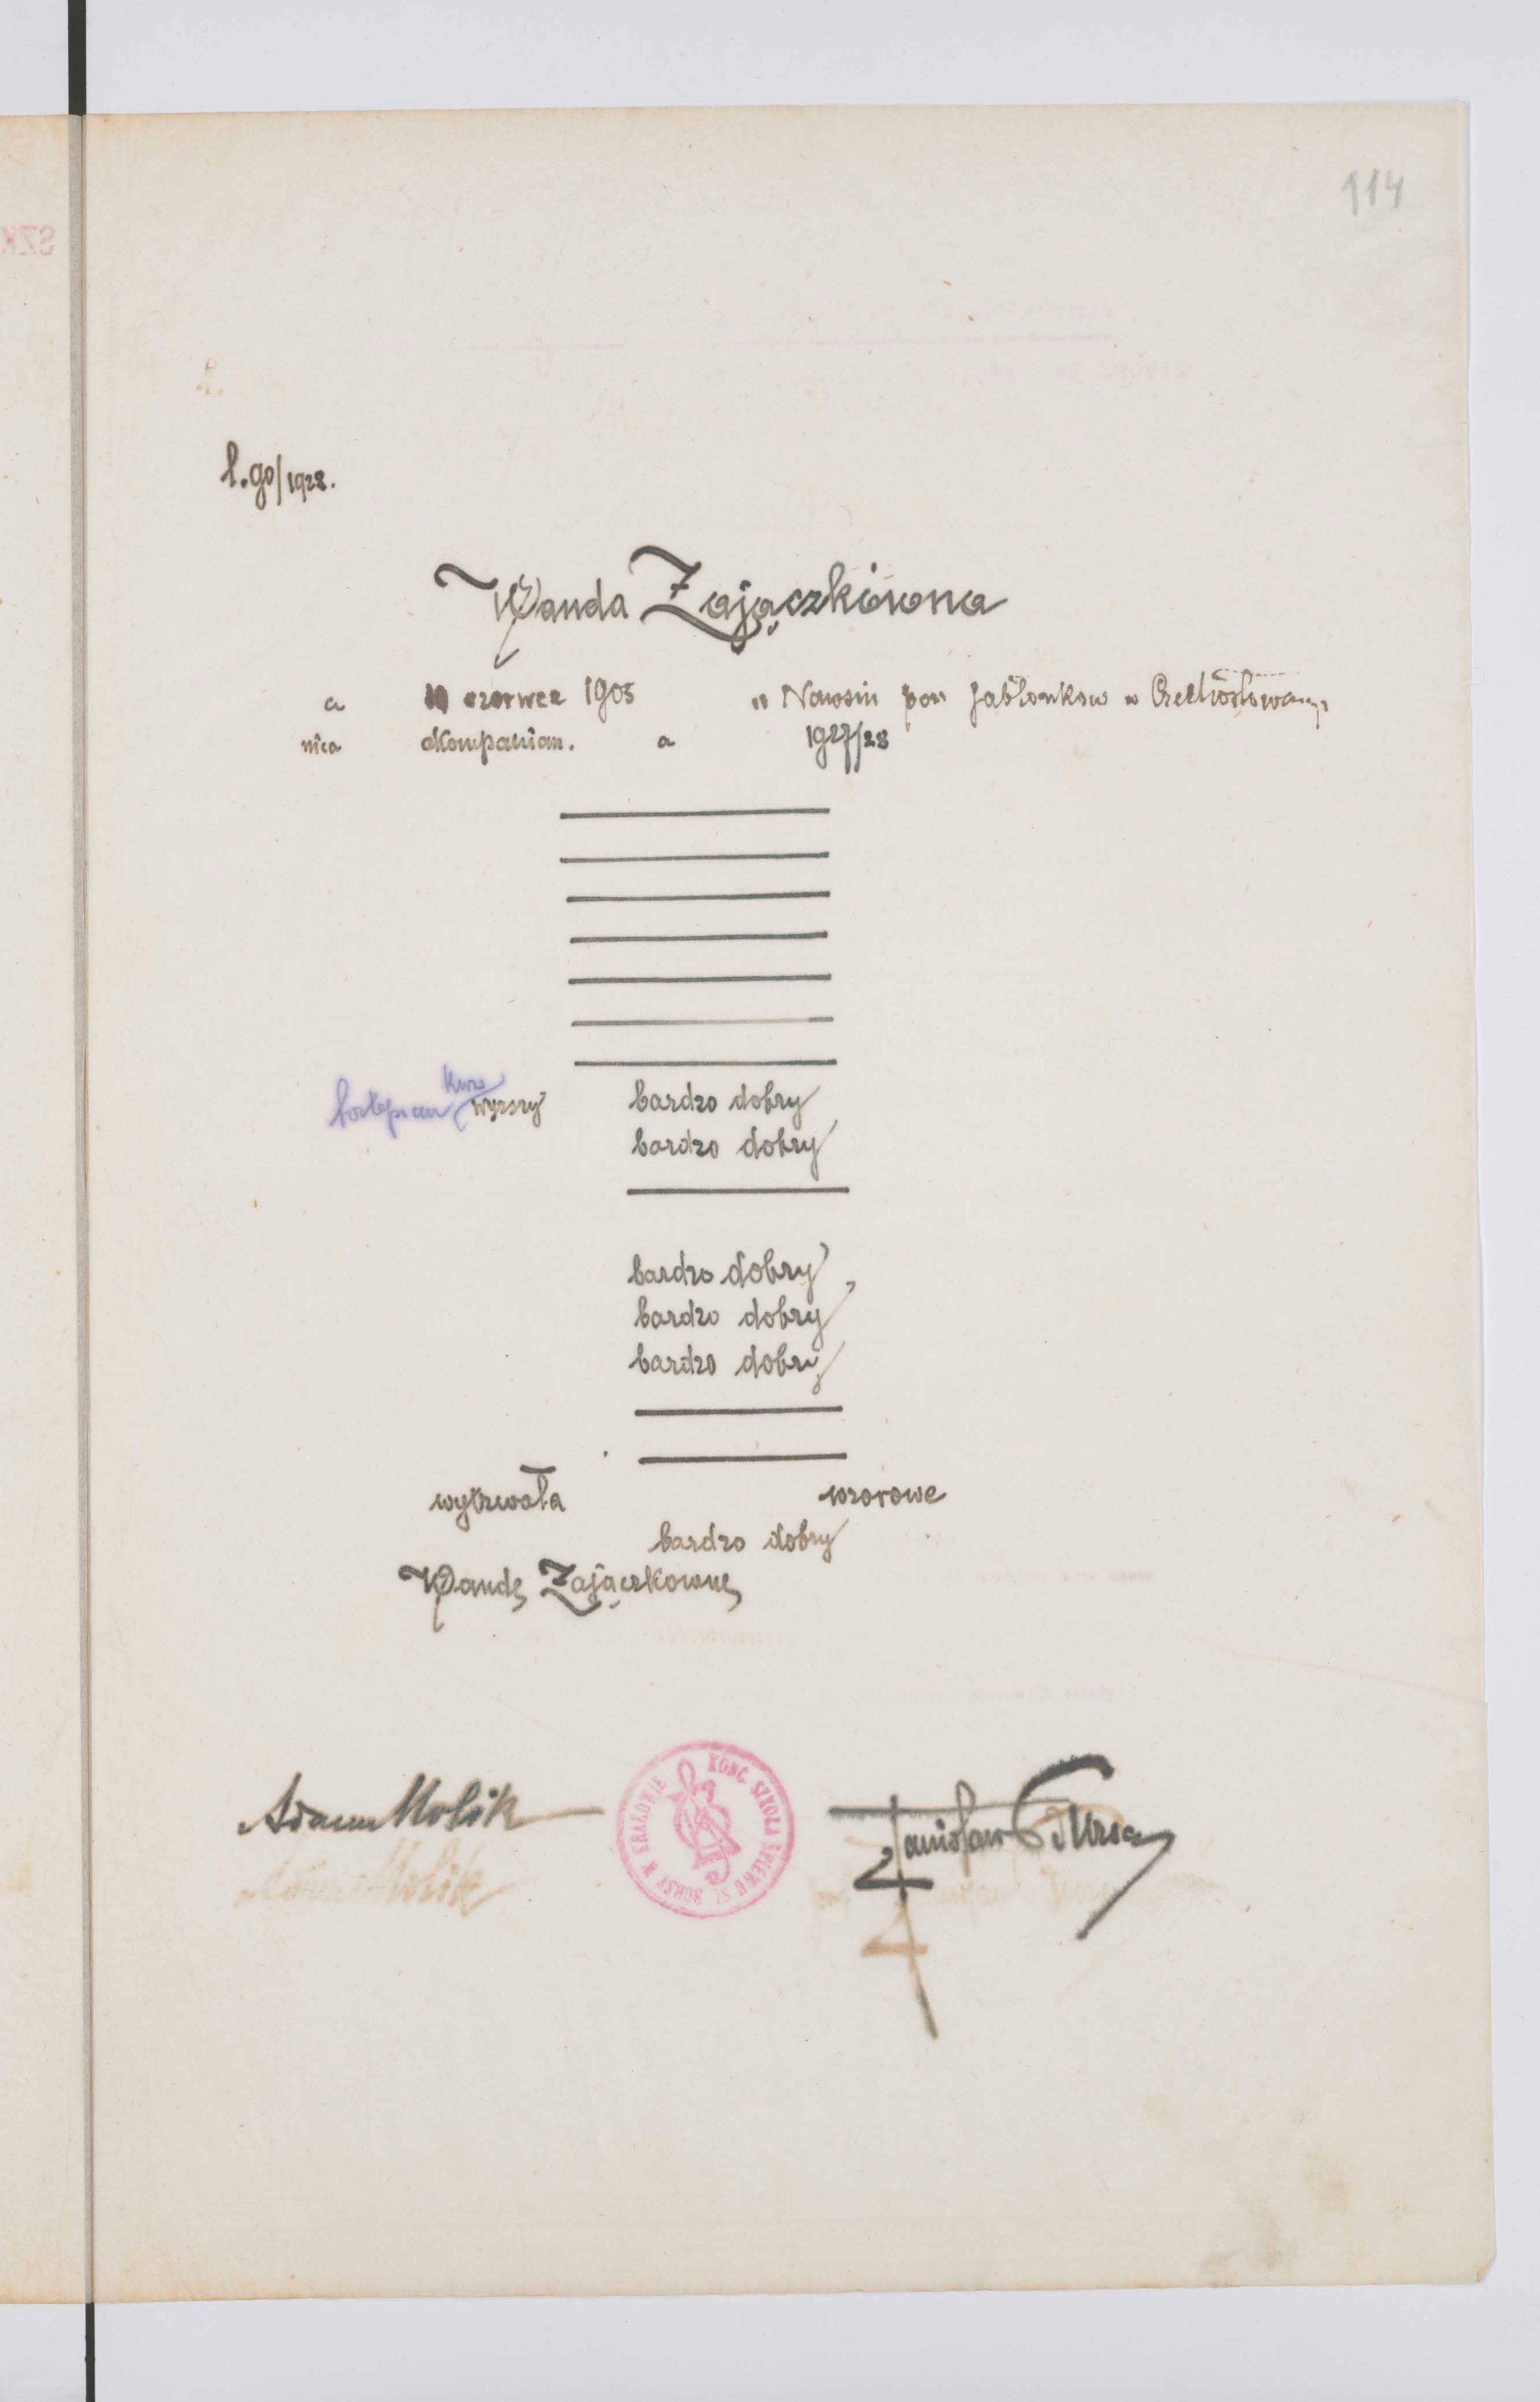 114
l. 90/1928.
Wanda Zajączkówna
a 10 czerwca 1905 w Nawsiu pow Jabłonkow w Czechosłowacyi
nica akompanian. a 1927/28
kurs
fortepian wyższy bardzo dobry
bardzo dobry
bardzo dobry
bardzo dobry
bardzo dobry
wytrwała wzorowe
bardzo dobry
Wandę Zajączkownę
KONC. SZKOŁA ŚPIEWU ST. BURSY W KRAKOWIE
Adam Molik Stanisław Bursa